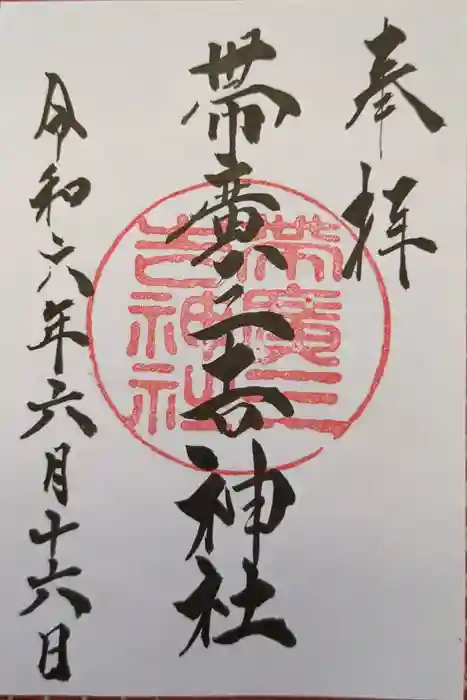 奉拝
帯廣三吉神社
帯廣三
吉神社
令和六年六月十六日